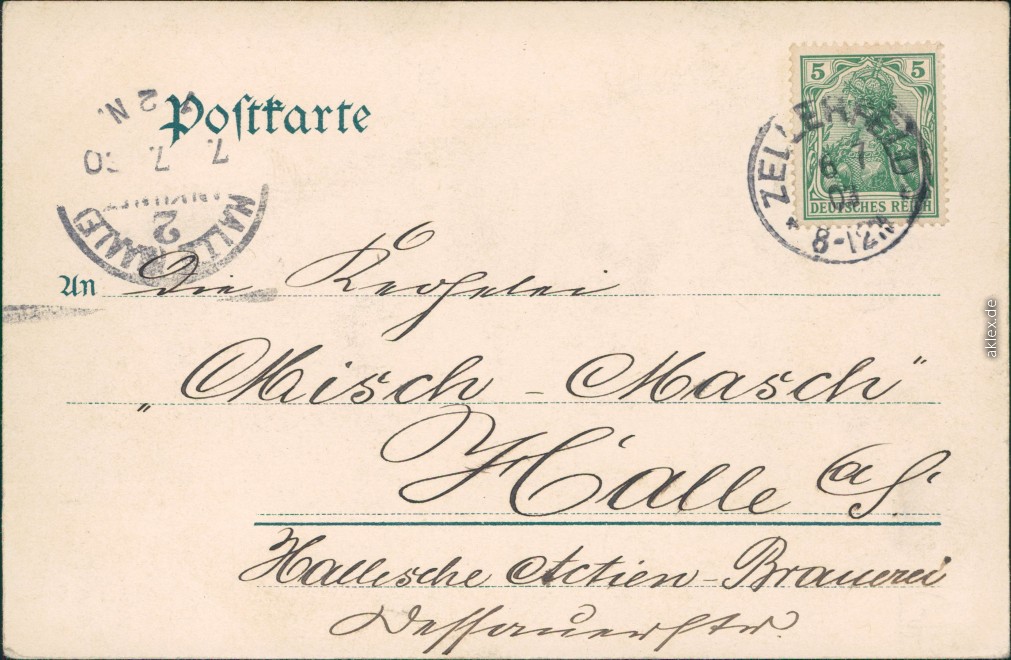 Postkarte
5 5
DEUTSCHES REICH
ZELLERFELD
7
03
8-12N
2 N.
7. 7. 0
HALLE (SAALE)
2
An die Kegelei
„Misch - Masch"
Halle a/S.
Hallesche Actien-Brauerei
Dessauerstr.
aklex.de